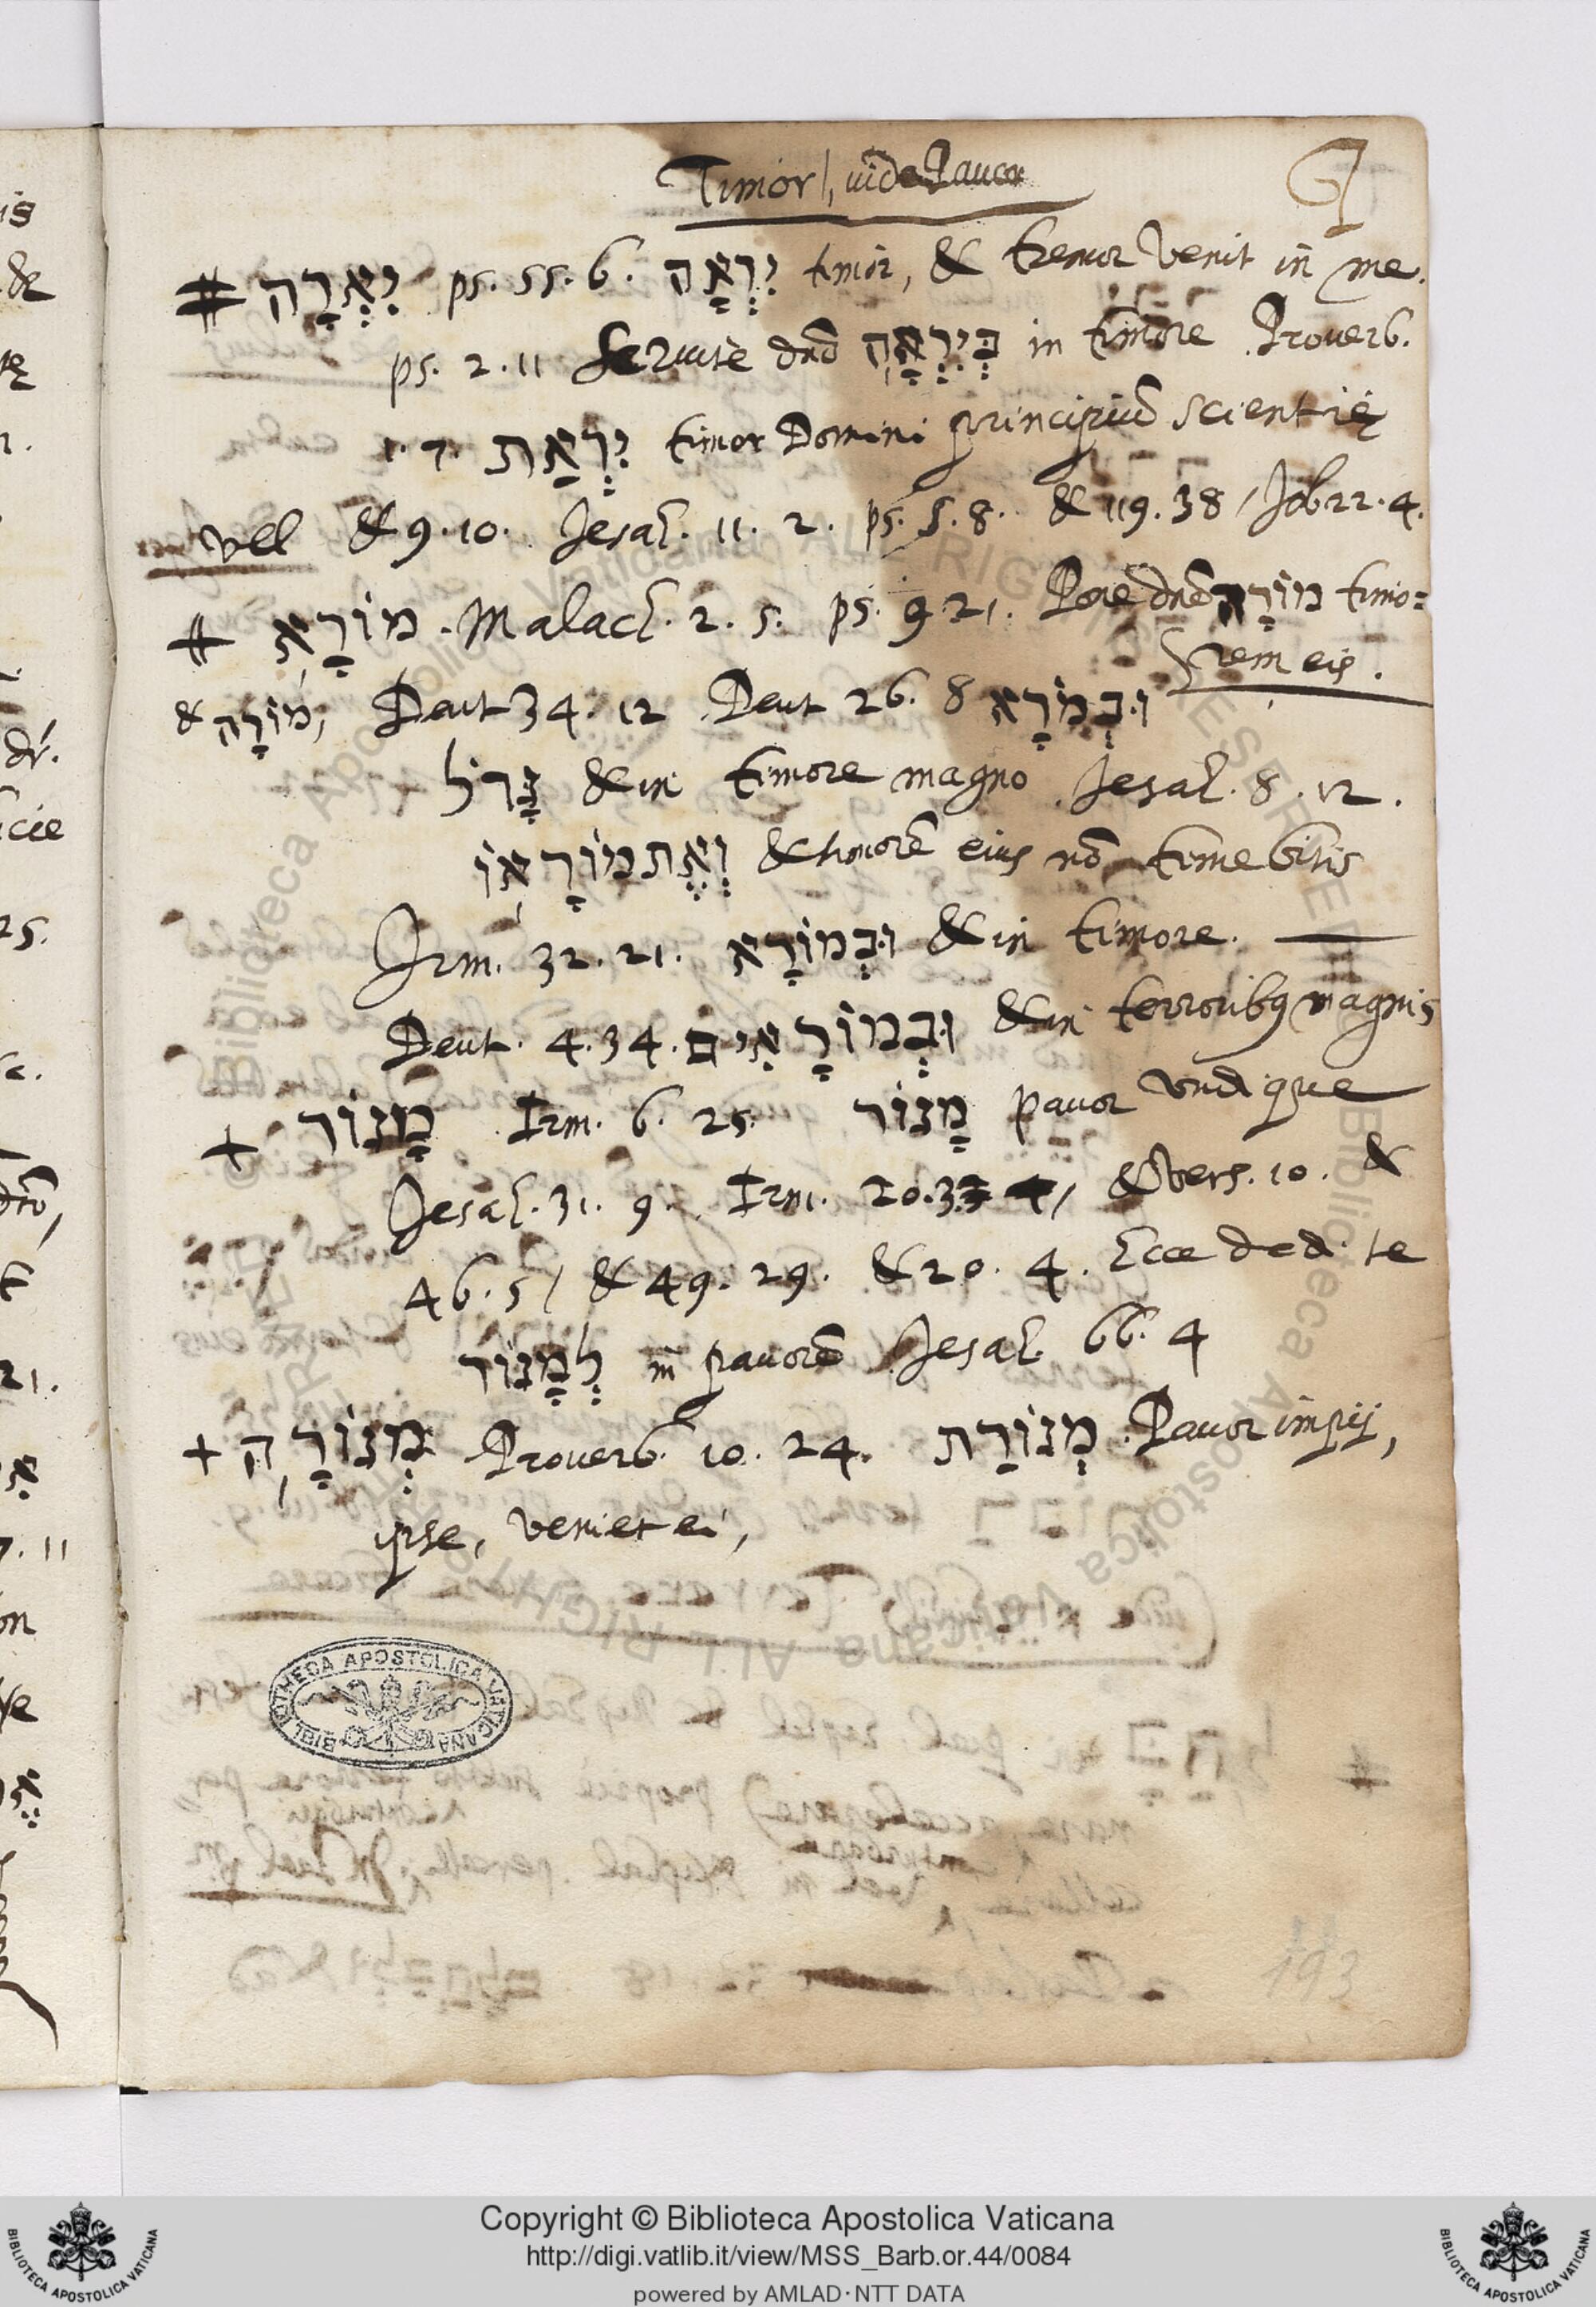 Timor, vide Pavor
# יִאְרָה ps. 55. 6. יִרְאָה timor, & tremor venit in me.
ps. 2. 11 Servite dnō בְּיִרְאָה in timore Proverb.
1. 7. יִרְאַת timor Domini principiū scientię
vel & 9. 10. Jesai. 11. 2. ps. 5. 8. & 119. 38 / Job 22. 4.
# מוֹרָא. Malach. 2. 5. ps. 9 21. Pone dnē מוֹרָה timo=
rem eis.
& מוֹרָה, Deut 34. 12 Deut 26. 8 וּבְמֹרָא
גָּדֹל & in timore magno Jesai. 8. 12.
וְאֶת מוֹרָאוֹ & timorē eius nō timebitis
Jrm. 32. 21. וּבְמוֹרָא & in timore.
Deut. 4. 34. וּבְמוֹרָאִים & in terroribꝰ magnis
+ מָגוֹר Irm. 6. 25. מָגוֹר pavor undique
Jesai. 31. 9. Irm. 20. 3 / & vers. 10. &
46. 5 / & 49. 29. & 20. 4. Ecce dedi te
לְמָגוֹר in pavorē Jesai. 66. 4
+ מְגוֹרָה Proverb. 10. 24. מְגוֹרַת Pavor impij,
ipse, veniet ei,
BIBLIOTHECA APOSTOLICA VATICANA
193
Copyright © Biblioteca Apostolica Vaticana
http://digi.vatlib.it/view/MSS_Barb.or.44/0084
powered by AMLAD·NTT DATA
BIBLIOTECA APOSTOLICA VATICANA
BIBLIOTECA APOSTOLICA VATICANA